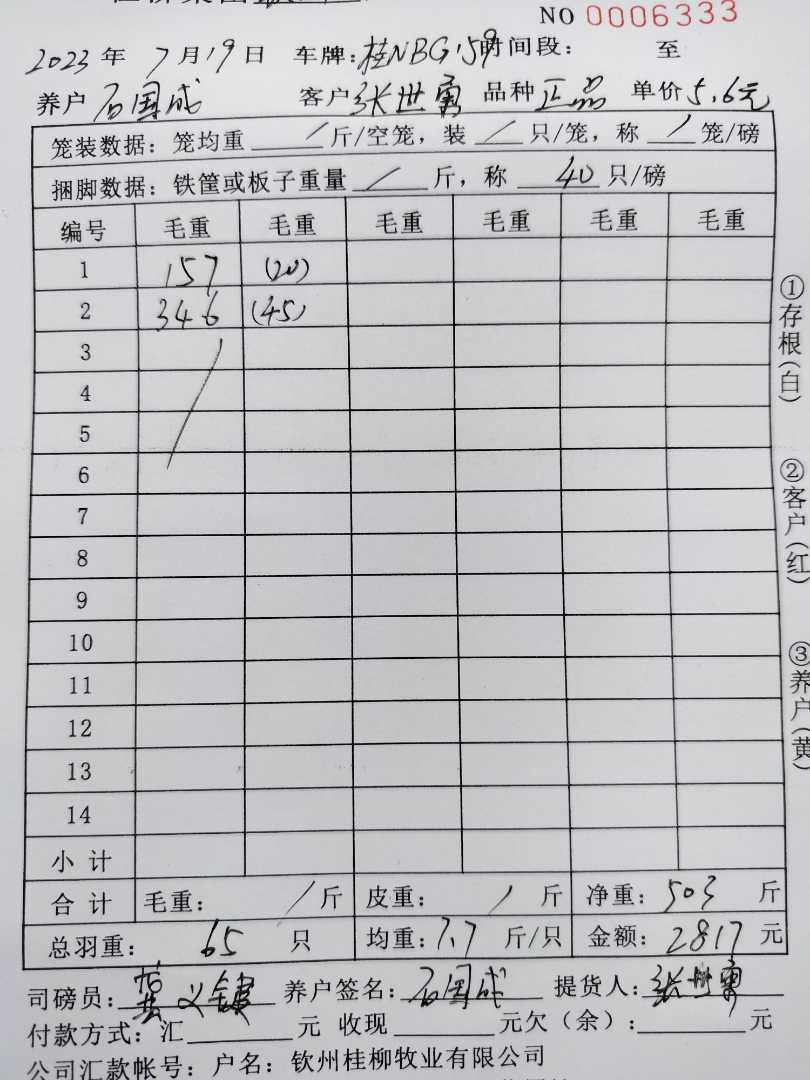 NO 0006333
2023 年 7 月 19 日 车牌：桂NBG159 时间段： 至
养户 石国成 客户 张世勇 品种 正品 单价 5.6元
笼装数据：笼均重 / 斤/空笼，装 / 只/笼，称 / 笼/磅
捆脚数据：铁筐或板子重量 / 斤，称 40 只/磅
编号 毛重 毛重 毛重 毛重 毛重 毛重
1 157 (20)
2 346 (45)
3
4
5
6
7
8
9
10
11
12
13
14
小 计
合 计 毛重： / 斤 皮重： / 斤 净重：503 斤
总羽重： 65 只 均重：7.7 斤/只 金额：2817 元
司磅员： 养户签名：石国成 提货人：张世勇
付款方式：汇 元 收现 元欠（余）： 元
公司汇款帐号：户名：钦州桂柳牧业有限公司
①存根(白)
②客户(红)
③养户(黄)